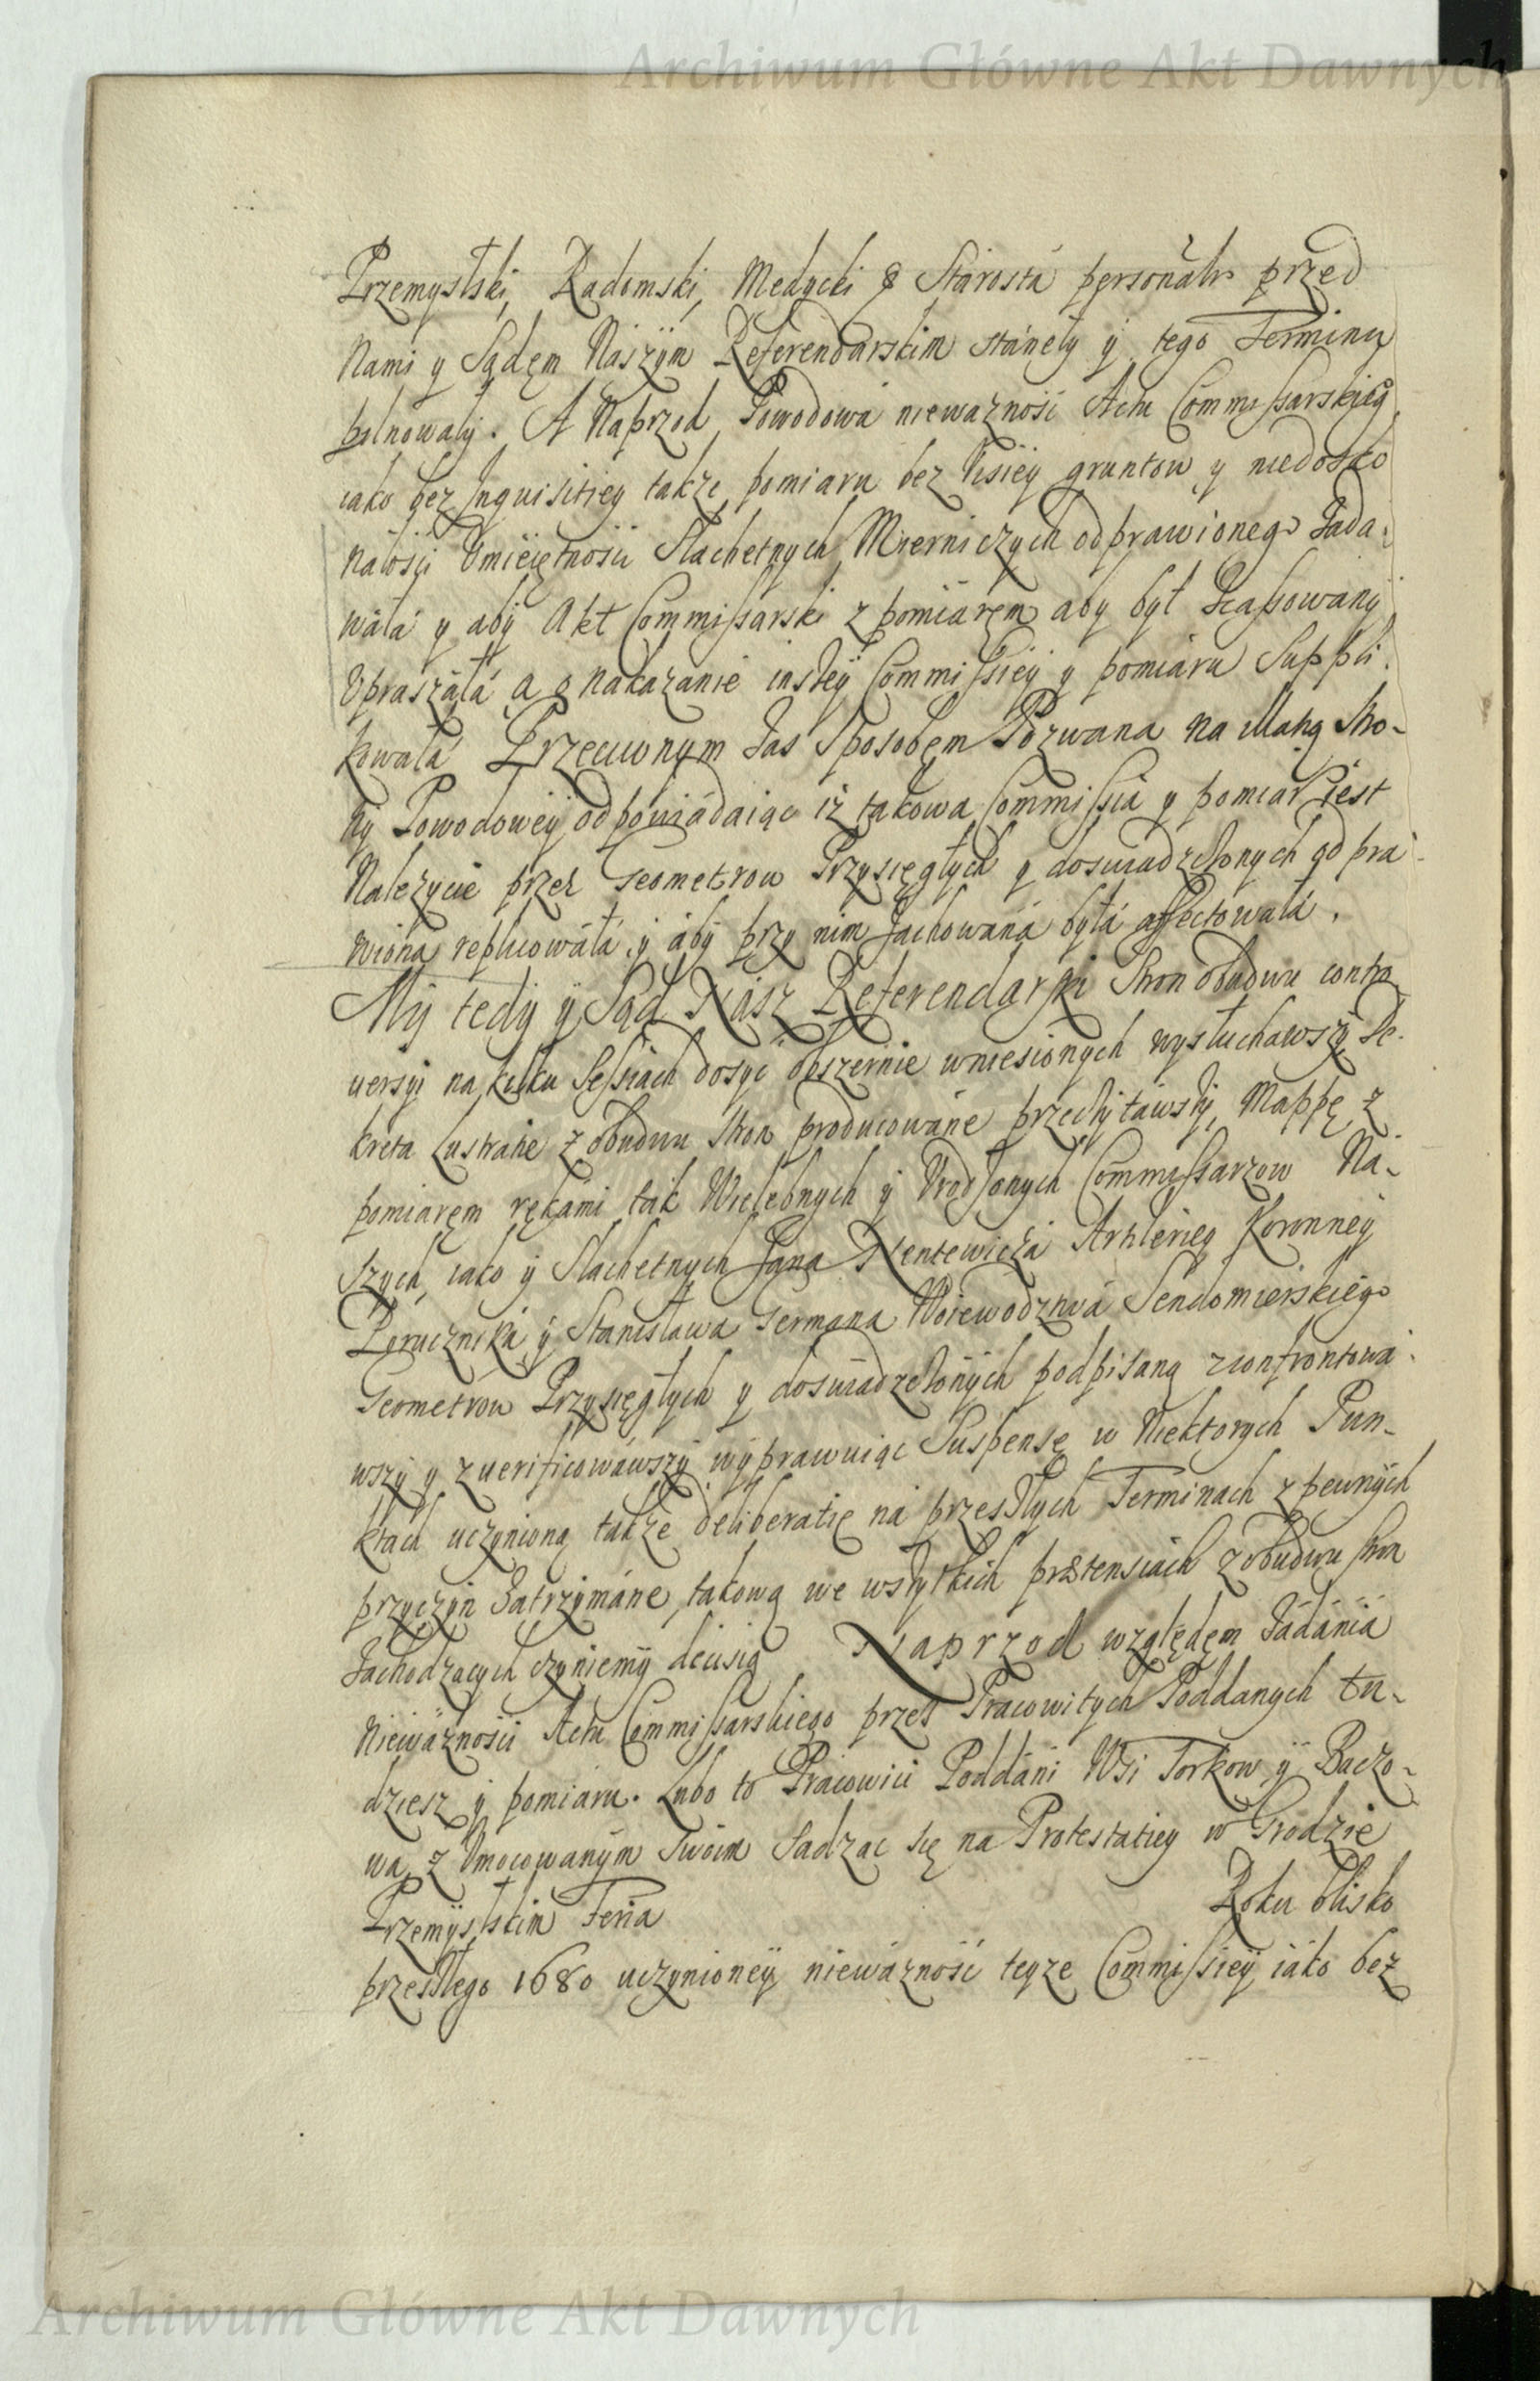 Archiwum Główne Akt Dawnych
Przemyslski, Radomski, Medycki & Starosta personalr przed
Nami y Sądem Naszym Referendarskim stanęły y tego Terminu
polnowały. A Naprzod Powodowa niewaznosć Actu Commissarskieg
iako bez Inquisitiey takze pomiaru bez Visiey gruntow y niedosko
nałosci Umieiętnosci Slachetnych Mierniczych odprawionego Zada-
wała y aby Akt Commissarski z pomiarem aby był Scassowany
Upraszała a o nakazanie inszey Commissiey y pomiaru Suppli-
kowała Przeciwnym Zas Sposobem Pozwana na Mapą Stro-
ny Powodowey odpowiadaiąc iz takowa Commissia y pomiar iest
Nalezycie przez Geometrow Przysięgłych y doswiadzczonych odpra-
wiona replicowała, y aby przy nim Zachowana była affectowała.
My tedy y Sąd Nasz Referendarski Stron obudwu contro-
uersyi na kilku Sessiach dosyć obszernie wniesionych wysłuchawszy De-
kreta Lustratie z obudwu Stron producowane przeczytawszy, Mappę z
pomiarem rękami tak Wielebnych y Urodzonych Commissarzow Na-
szych, iako y Slachetnych Jana Stentewicza Artileriey Koronney
Porucznika y Stanisława Germana Woiewodztwa Sendomierskiego
Geometrow Przysięgłych y doswiadzczonych podpisaną zconfrontowa-
wszy y zuerificowawszy wyprawuiąc Suspensę w Niektorych Pun-
ktach uczynioną takze deliberatię na przeszłych Terminach z pewnych
przyczyn Zatrzymane, takową we wszytkich prætensiach z obudwu stron
Zachodzących czyniemy decisią Naprzod względem Zadania
Niewaznosci Actu Commissarskiego przez Pracowitych Poddanych tu-
dziesz y pomiaru. Lubo to Pracowici Poddani Wsi Torkow y Baczo-
wa z Umocowanym Swoim Sadząc się na Protestatiey w Grodzie
Przemyslskim Feria Roku blisko
przeszłego 1680 uczynioney niewaznosć teyze Commissiey iako bez
Archiwum Główne Akt Dawnych